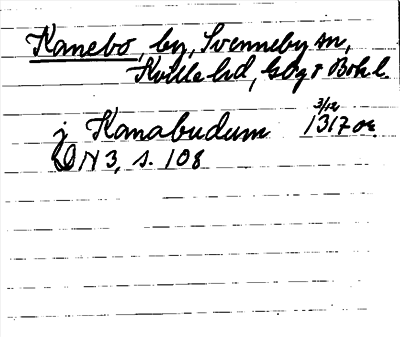 Kanebo, by, Svenneby sn,
Kville hd, Gbg o Bohl.
j Kanabudum 3/12 1317 or.
DN 3, s. 108